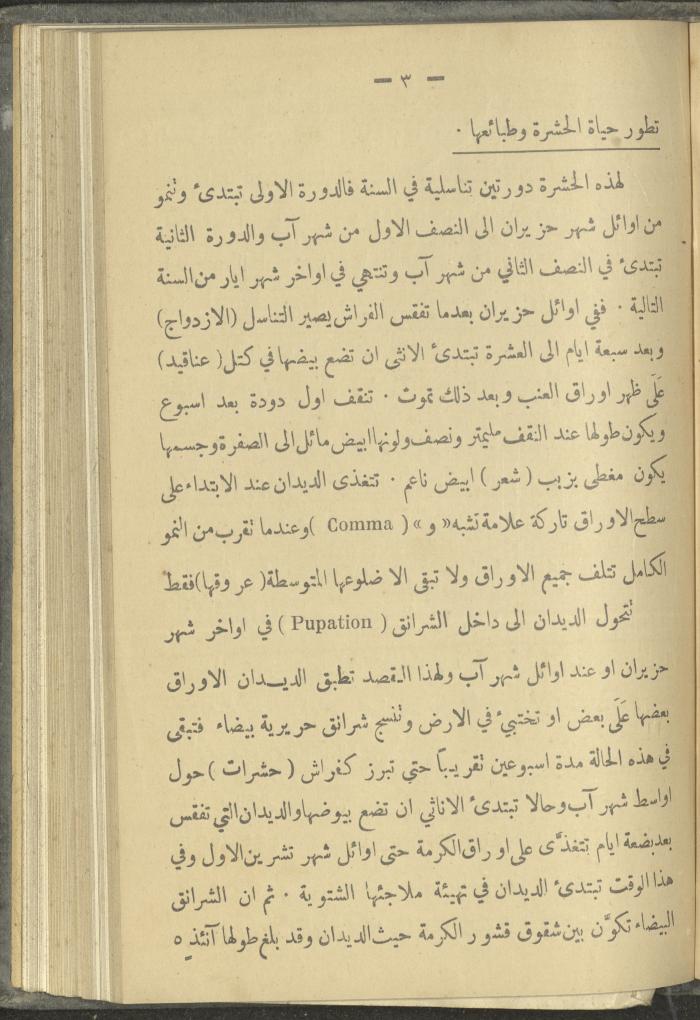 — ٣ —
تطور حياة الحشرة وطبائعها ٠
لهذه الحشرة دورتين تناسلية في السنة فالدورة الاولى تبتدئ وتنمو
من اوائل شهر حزيران الى النصف الاول من شهر آب والدورة الثانية
تبتدئ في النصف الثاني من شهر آب وتنتهي في اواخر شهر ايار من السنة
التالية ٠ ففي اوائل حزيران بعدما تفقس الفراش يصير التناسل (الازدواج)
وبعد سبعة ايام الى العشرة تبتدئ الانثى ان تضع بيضها في كتل (عناقيد)
عَلَى ظهر اوراق العنب وبعد ذلك تموت ٠ تنقف اول دودة بعد اسبوع
ويكون طولها عند النقف مليمتر ونصف ولونها ابيض مائل الى الصفرة وجسمها
يكون مغطى بزبب (شعر) ابيض ناعم ٠ تتغذى الديدان عند الابتداء على
سطح الاوراق تاركة علامة تشبه «و» (Comma) وعندما تقرب من النمو
الكامل تتلف جميع الاوراق ولا تبقى الا ضلوعها المتوسطة (عروقها) فقط
تتحول الديدان الى داخل الشرانق (Pupation) في اواخر شهر
حزيران او عند اوائل شهر آب ولهذا المقصد تطبق الديدان الاوراق
بعضها عَلَى بعض او تختبيء في الارض وتنسج شرانق حريرية بيضاء فتبقى
في هذه الحالة مدة اسبوعين تقريباً حتى تبرز كفراش (حشرات) حول
اواسط شهر آب وحالا تبتدئ الاناثي ان تضع بيوضها والديدان التي تفقس
بعد بضعة ايام تتغذَّى على اوراق الكرمة حتى اوائل شهر تشرين الاول وفي
هذا الوقت تبتدئ الديدان في تهيئة ملاجئها الشتوية ٠ ثم ان الشرانق
البيضاء تكوَّن بين شقوق قشور الكرمة حيث الديدان وقد بلغ طولها آنئذٍ ٥